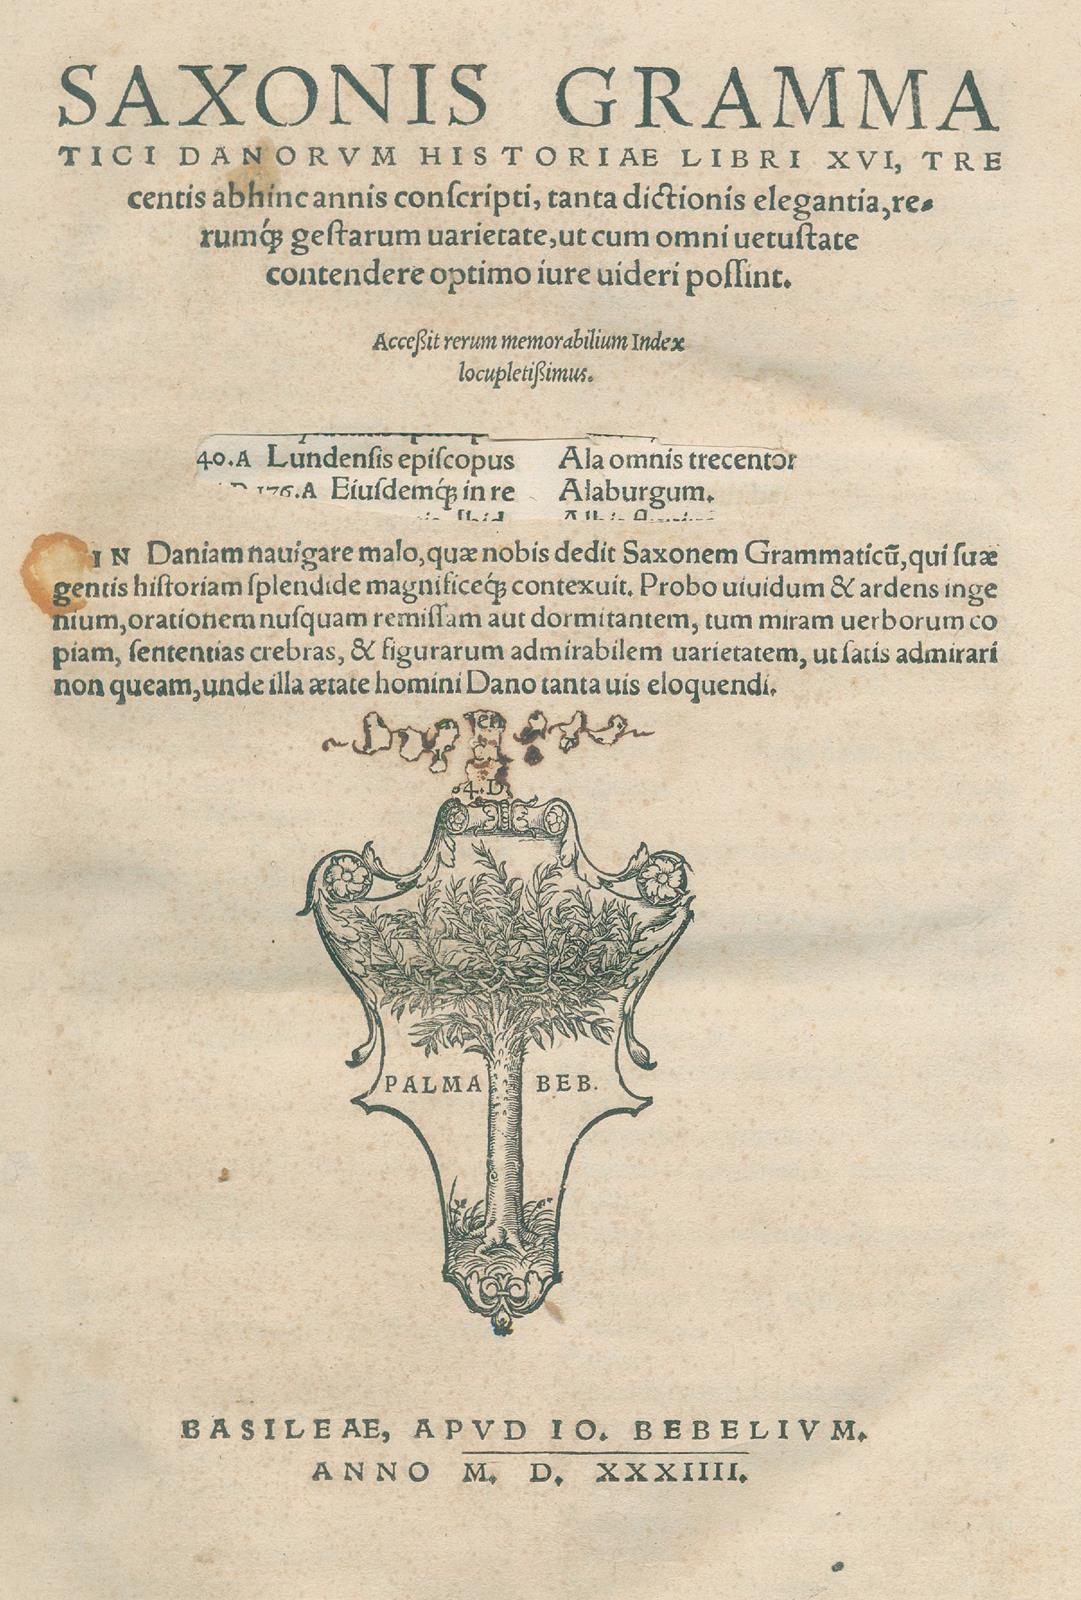 SAXONIS GRAMMA
TICI DANORVM HISTORIAE LIBRI XVI, TRE
centis abhinc annis conſcripti, tanta dictionis elegantia, re-
rumq́ꝫ geſtarum uarietate, ut cum omni uetuſtate
contendere optimo iure uideri poſſint.
Acceßit rerum memorabilium Index
locupletißimus.
40.A Lundenſis epiſcopus Ala omnis trecentor
176.A Eiuſdemq́ꝫ in re Alaburgum.
IN Daniam nauigare malo, quæ nobis dedit Saxonem Grammaticũ, qui ſuæ
gentis hiſtoriam ſplendide magnificeq́ꝫ contexuit. Probo uiuidum & ardens inge
nium, orationem nuſquam remiſſam aut dormitantem, tum miram uerborum co
piam, ſententias crebras, & figurarum admirabilem uarietatem, ut ſatis admirari
non queam, unde illa ætate homini Dano tanta uis eloquendi.
4.D.
PALMA BEB.
BASILEAE, APVD IO. BEBELIVM.
ANNO M. D. XXXIIII.